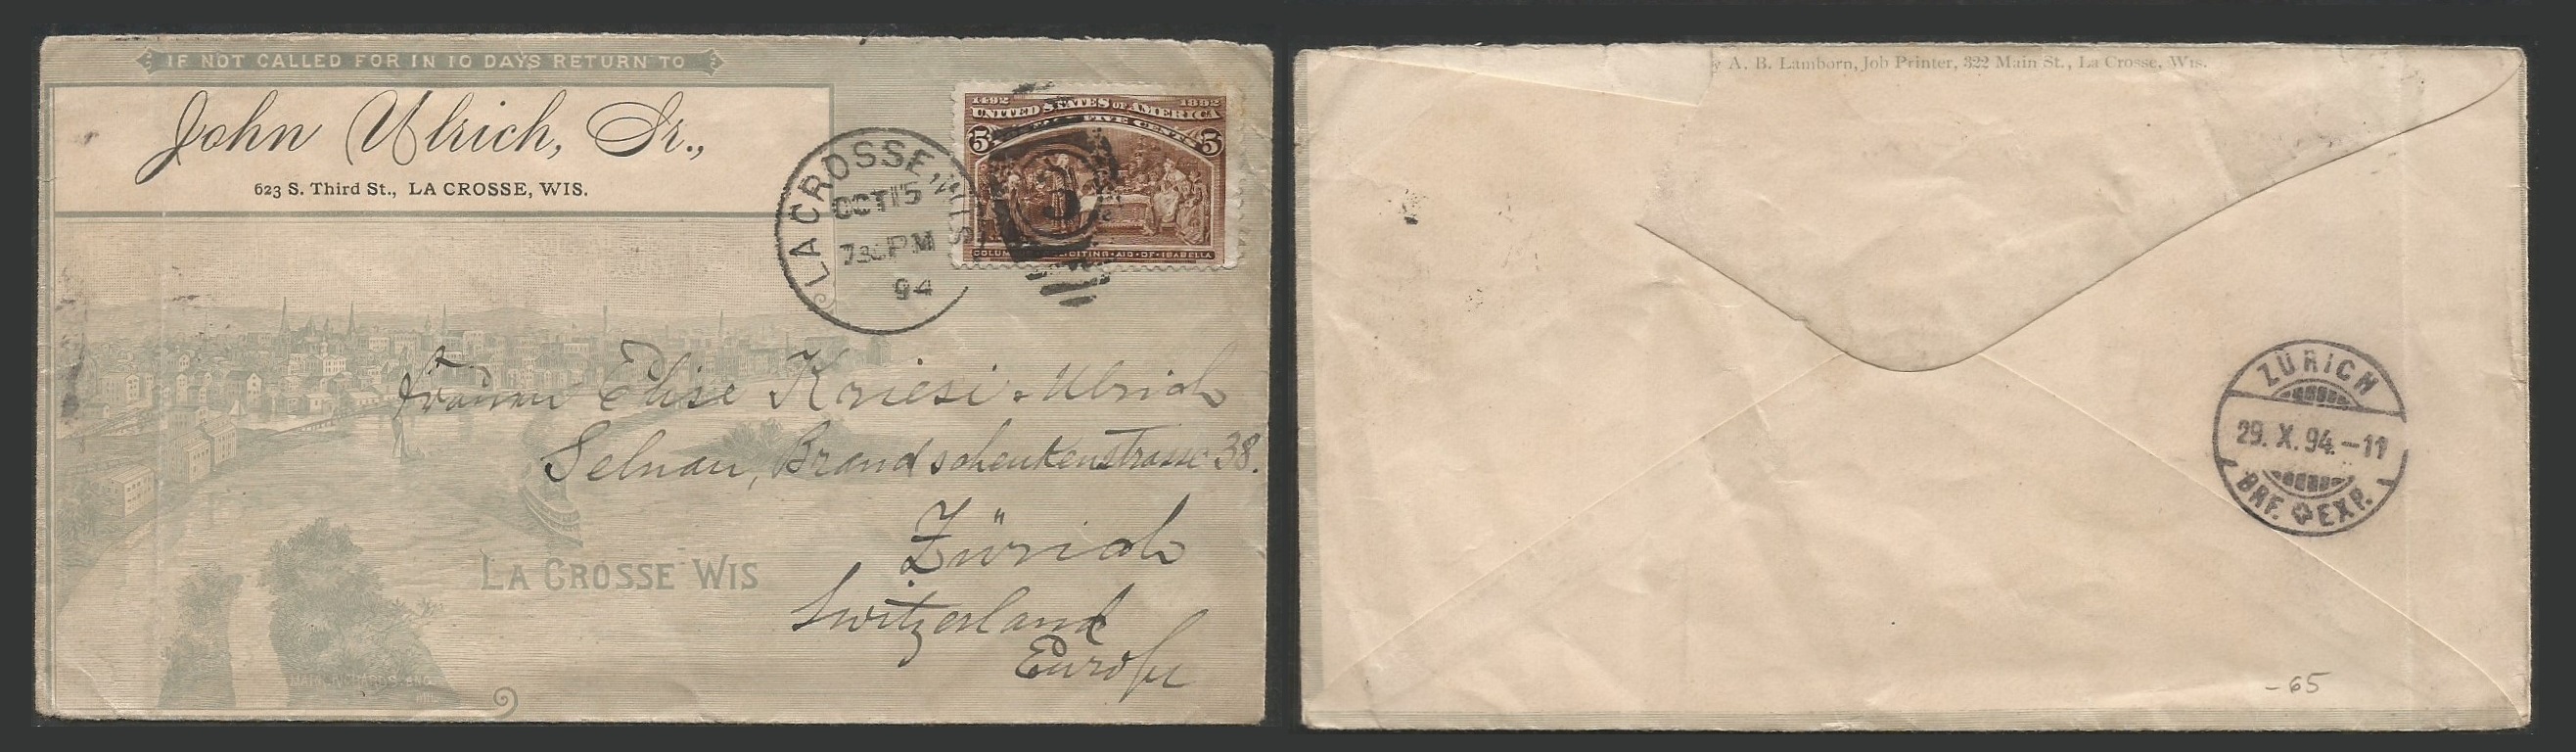 IF NOT CALLED FOR IN 10 DAYS RETURN TO
John Ulrich, Sr.,
623 S. Third St., LA CROSSE, WIS.
1492 1892
UNITED STATES OF AMERICA
FIVE CENTS
5 5
COLUM ICITING·AID·OF·ISABELLA
LA CROSSE, WIS
OCT 15
730 PM
94
3
Elise Kriesi-Ulrich
Selnau, Brandschenkenstrasse 38.
Zürich
Switzerland
Europe
LA CROSSE WIS
y A. B. Lamborn, Job Printer, 322 Main St., La Crosse, Wis.
ZÜRICH
29. X. 94.–11
BRF. EXP.
-65